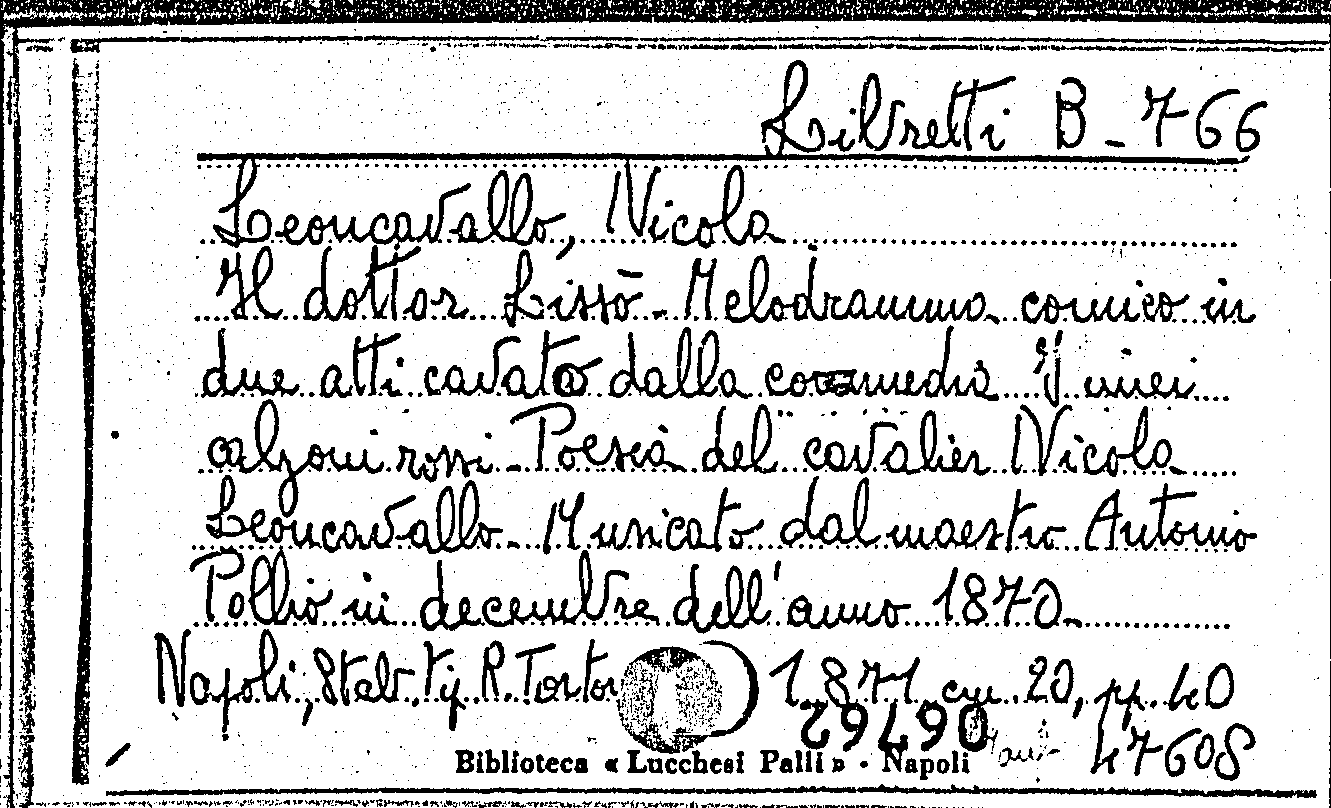 Libretti B - 766
Leoncavallo, Nicola
Il dottor Lissò - Melodramma comico in
due atti cavato dalla commedia "I miei
calzoni rossi - Poesia del cavalier Nicola
Leoncavallo - Musicato dal maestro Antonio
Pollio in decembre dell'anno 1870 -
Napoli, Stab. Tip. R. Tortor 1871 cm. 20, pp. 40
29790
Biblioteca « Lucchesi Palli » - Napoli 47608